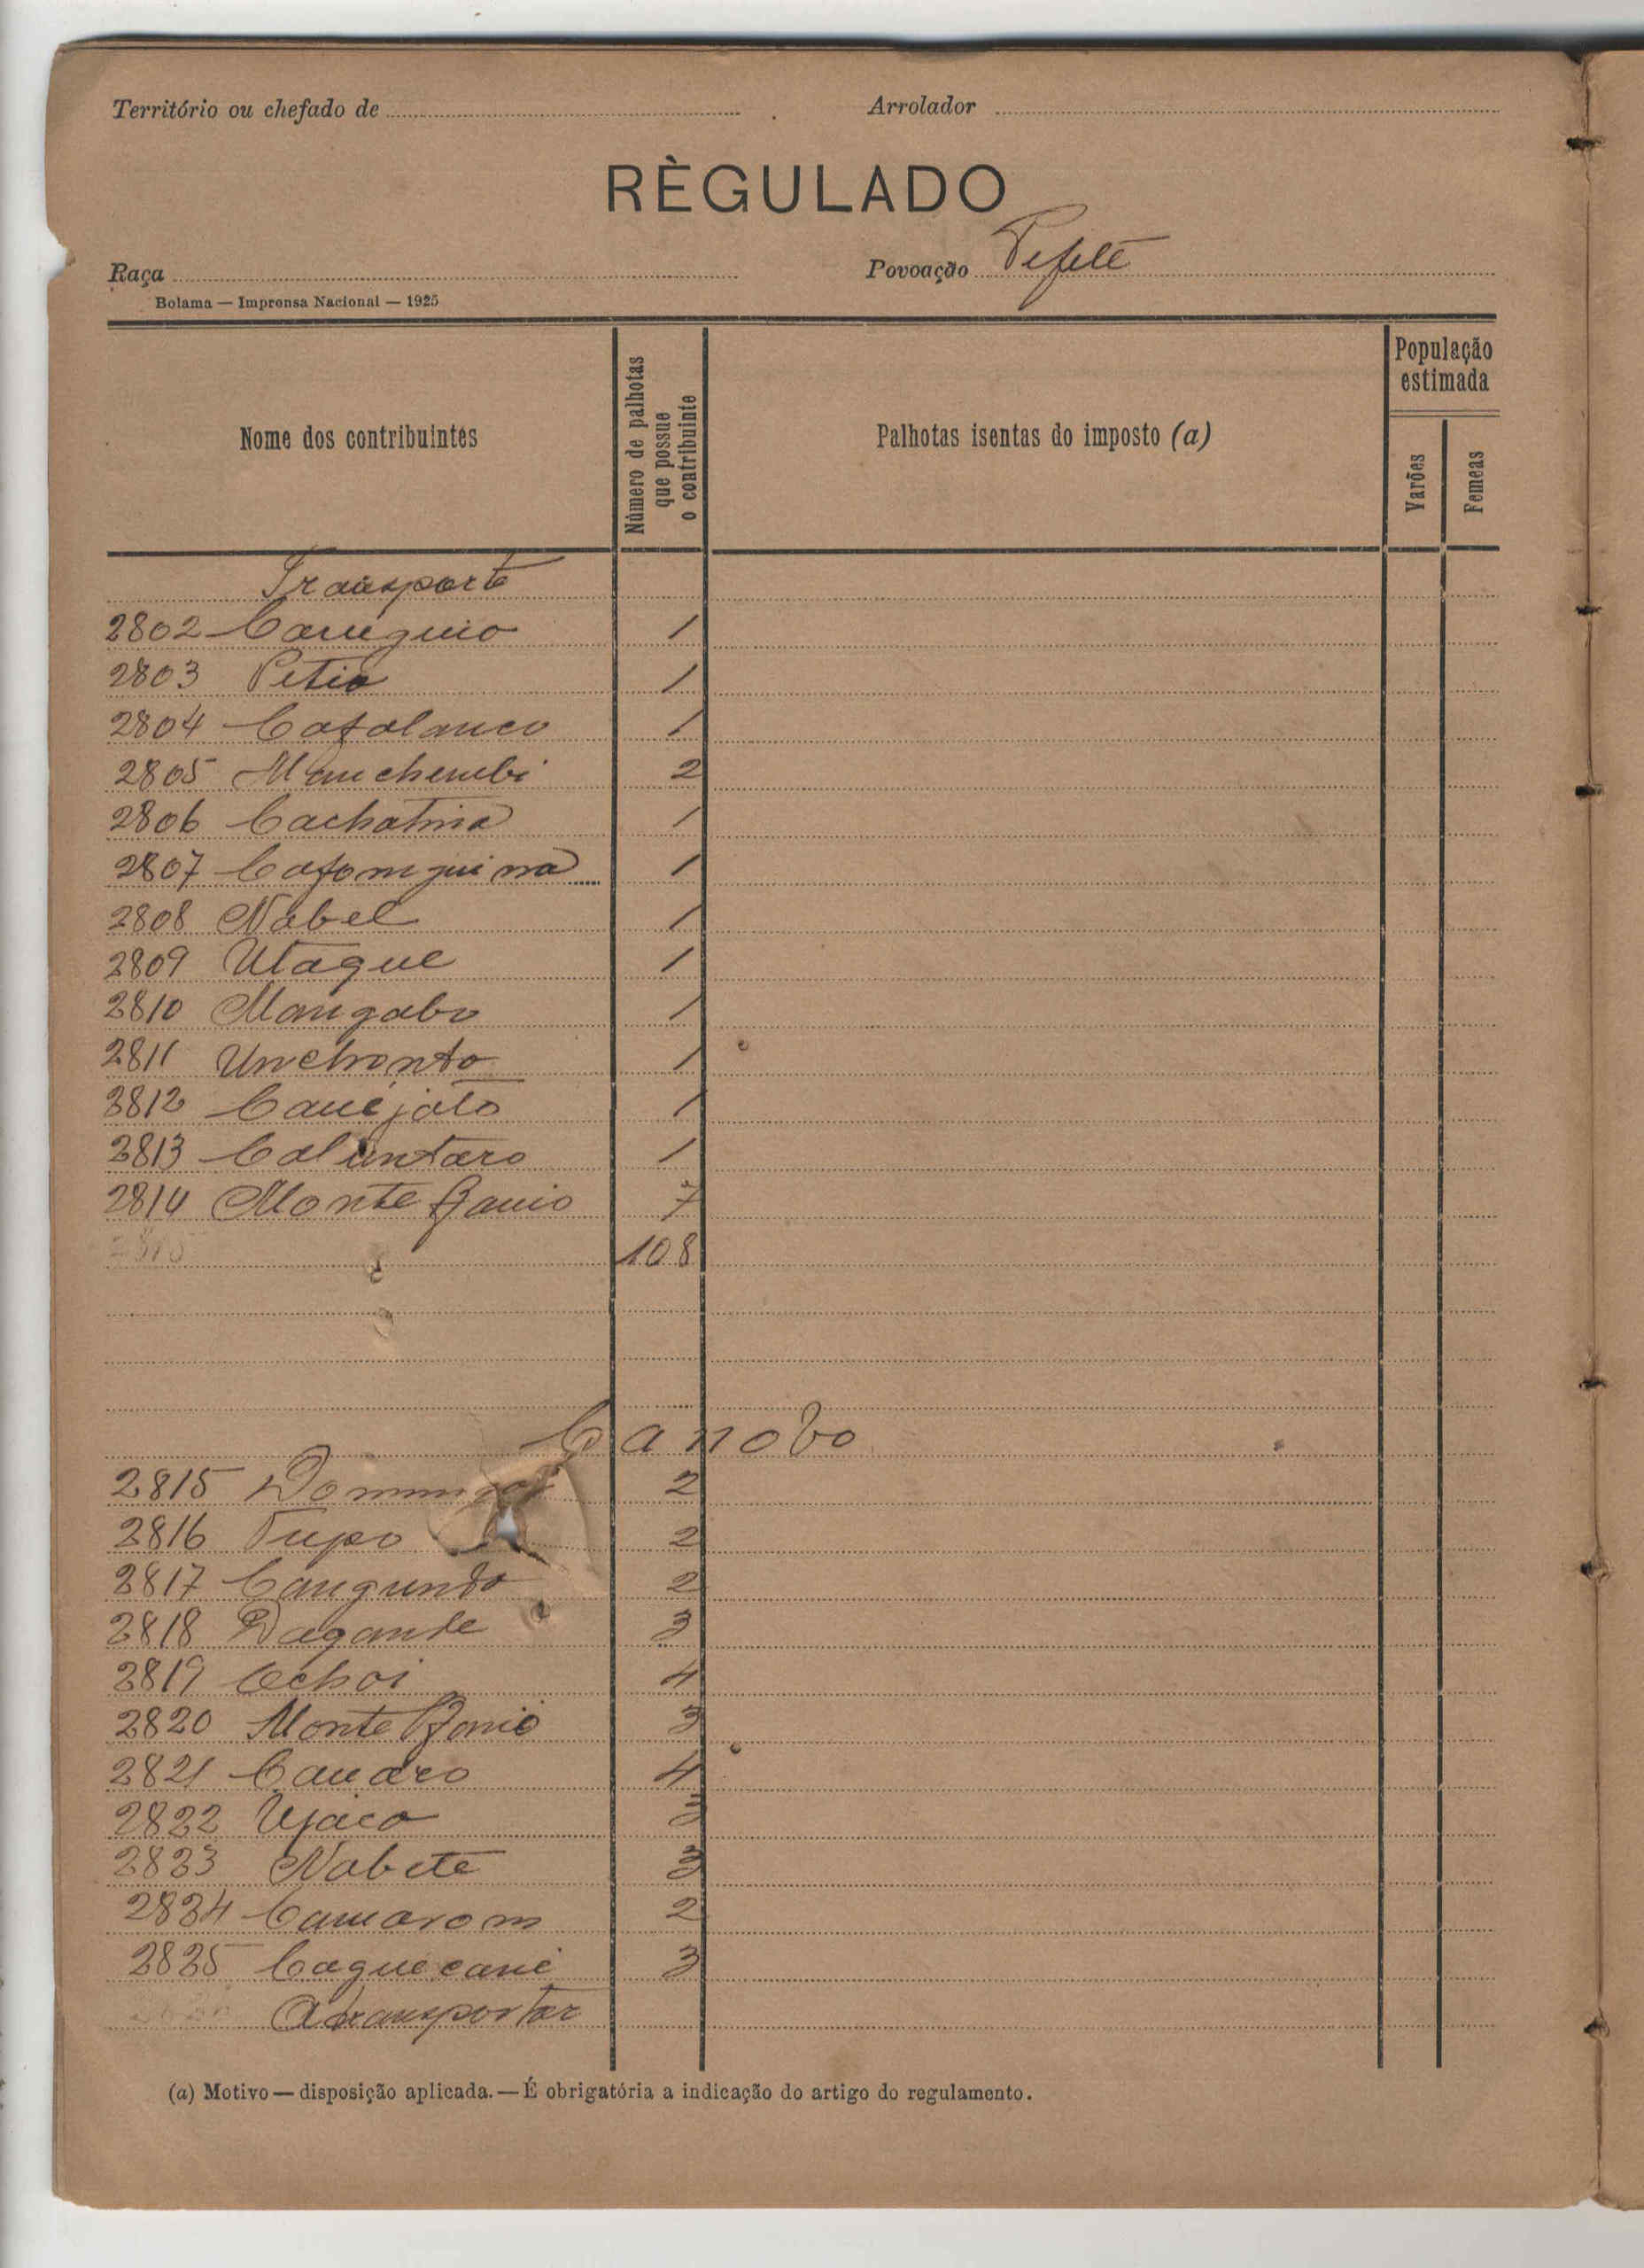 Território ou chefado de
Arrolador
RÈGULADO
Raça
Povoação Pefete
Bolama — Imprensa Nacional — 1925
Nome dos contribuintes
Número de palhotas que possue o contribuinte
Palhotas isentas do imposto (a)
População estimada
Varões
Femeas
Transporte
2802 Caruguio 1
2803 Petia 1
2804 Cafalanco 1
2805 Mancherubi 2
2806 Cachatina 1
2807 Cafomguina 1
2808 Nabel 1
2809 Utaque 1
2810 Mangabo 1
2811 Unchonto 1
2812 Cauejato 1
2813 Caluntaro 1
2814 Monte Banio 7
108
Canobo
2815 Domingos 2
2816 Tupo 2
2817 Cangundo 2
2818 Dagante 3
2819 Cechoi 4
2820 Monte Banio 3
2821 Canaro 4
2822 Ujaco 3
2823 Nabete 3
2824 Camarom 2
2825 Caguecane 3
A transportar
(a) Motivo — disposição aplicada. — É obrigatória a indicação do artigo do regulamento.